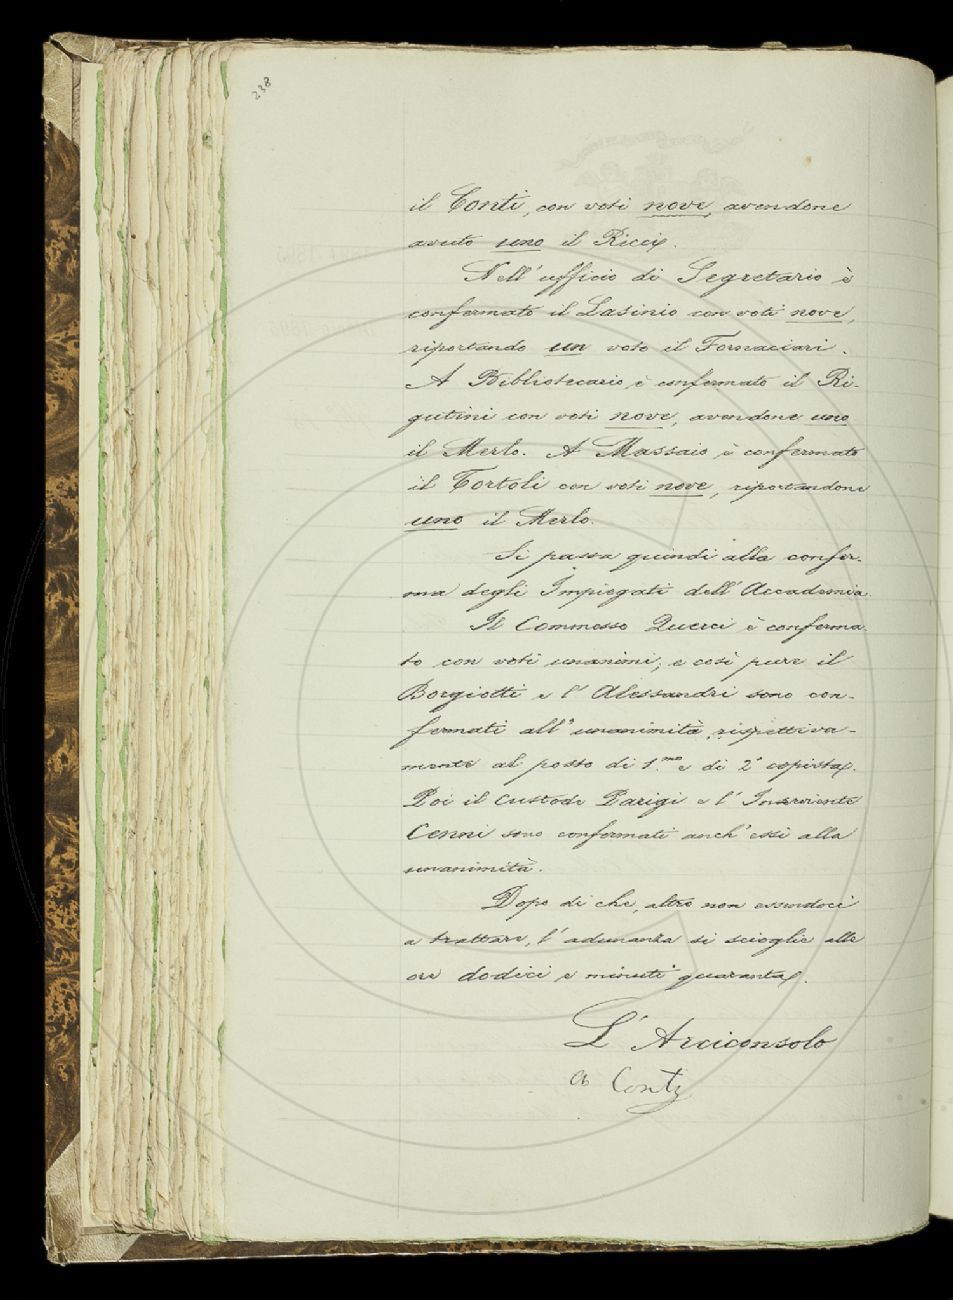 238
il Conti, con voti nove, avendone
avuto uno il Ricci.
Nell' ufficio di Segretario è
confermato il Lasinio con voti nove,
riportando un voto il Fornaciari.
A Bibliotecario è confermato il Ri-
gutini con voti nove, avendone uno
il Merlo. A Massaio è confermato
il Tortoli con voti nove, riportandone
uno il Merlo.
Si passa quindi alla confer-
ma degli Impiegati dell' Accademia.
Il Commesso Querci è conferma-
to con voti unanimi; e così pure il
Borgiotti e l' Alessandri sono con-
fermati all' unanimità, rispettiva-
mente al posto di 1.mo e di 2° copista.
Poi il Custode Parigi e l' Inserviente
Cenni sono confermati anch' essi alla
unanimità.
Dopo di che, altro non essendoci
a trattare, l' adunanza si scioglie alle
ore dodici e minuti quaranta.
L' Arciconsolo
A Conti